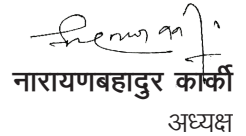 नारायणबहादुर कार्की
अध्यक्ष